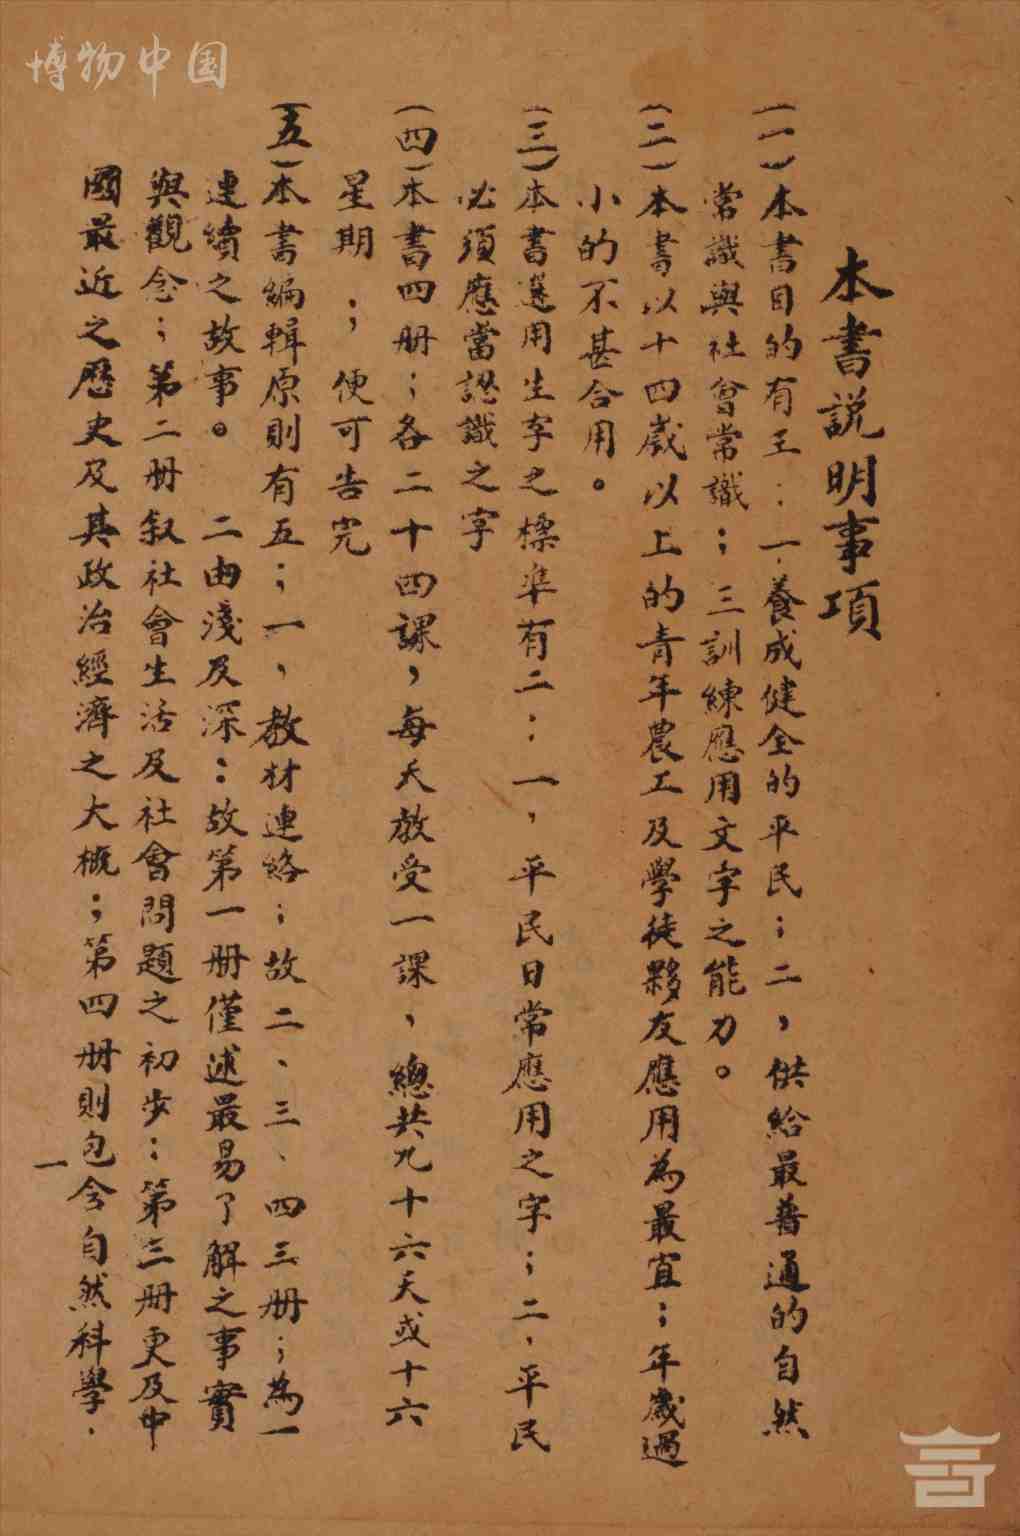 博物中国
本書説明事項
(一)本書目的有三:一.養成健全的平民;二,供給最普通的自然
常識與社會常識;三訓練應用文字之能力。
(二)本書以十四歲以上的青年農工及學徒夥友應用為最宜;年歲過
小的不甚合用。
(三)本書選用生字之標準有二:一,平民日常應用之字;二,平民
必須應當認識之字
(四)本書四册;各二十四課,每天教受一課,總共九十六天或十六
星期;便可告完
(五)本書編輯原則有五;一,教材連絡;故二、三、四三册;為一
連續之故事。 二由淺及深:故第一册僅述最易了解之事實
與觀念;第二册叙社會生活及社會問題之初步:第三册更及中
國最近之歷史及其政治經濟之大概;第四册則包含自然科學.
一